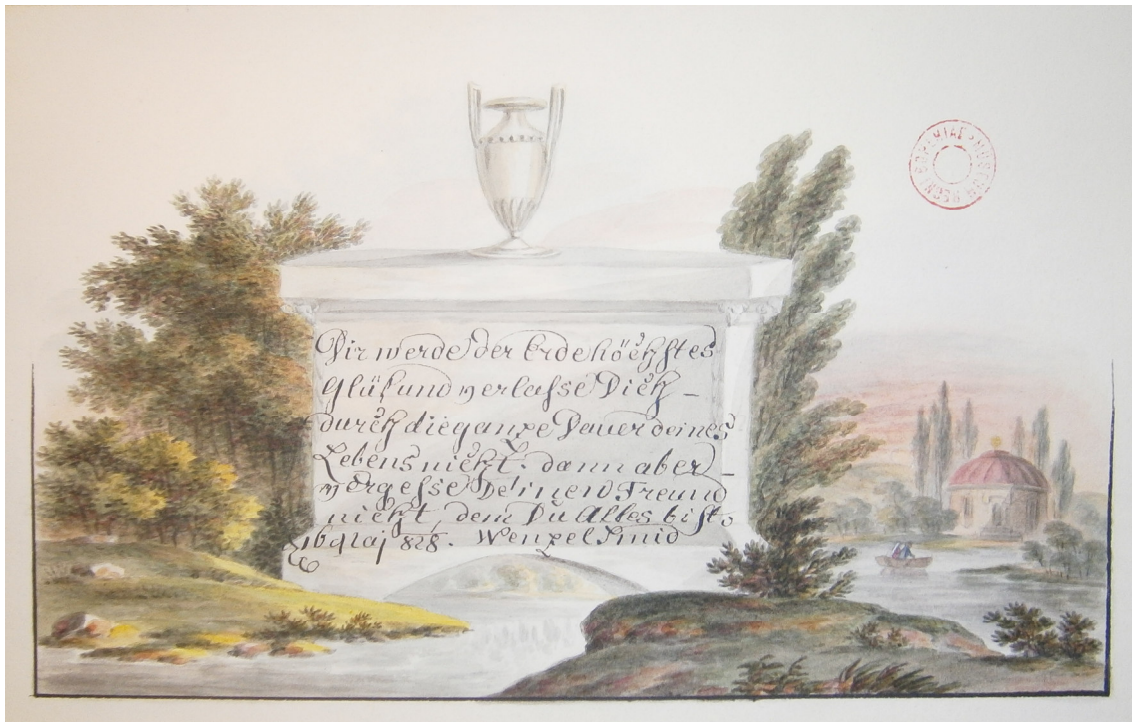 Dir werde der Erde höchstes
Glük und verlasse Dich –
durch die ganze Dauer deines
Lebens nicht. dann aber –
vergesse Deinen Freund
nicht, dem Du Alles bist.
16 Maj 828. Wenzel Smid
MUSEUM